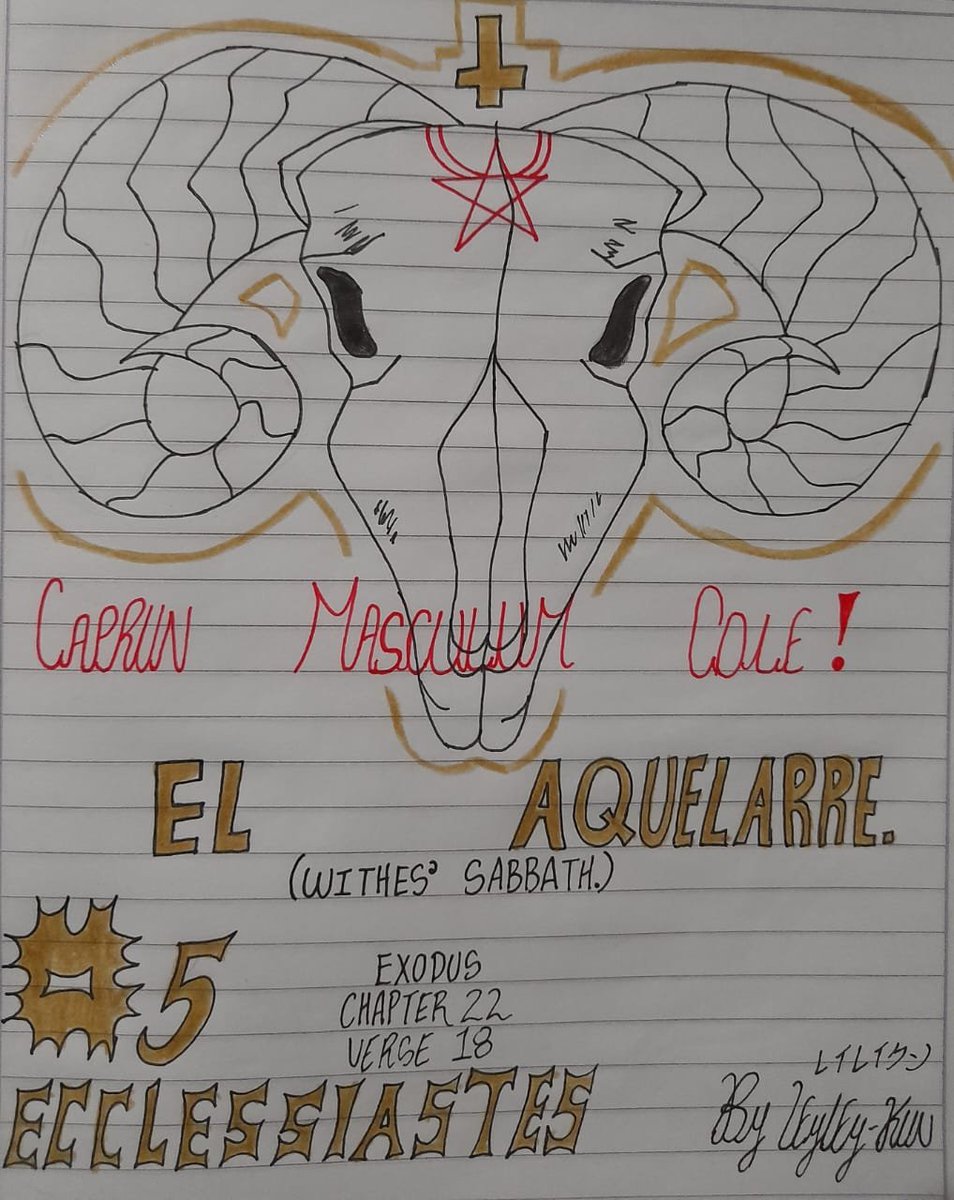 CAPRUN MASCULUM COLE!
EL AQUELARRE.
(WITHES' SABBATH.)
#5
EXODUS
CHAPTER 22
VERSE 18
ECCLESSIASTES
By LEYLEY-KUN